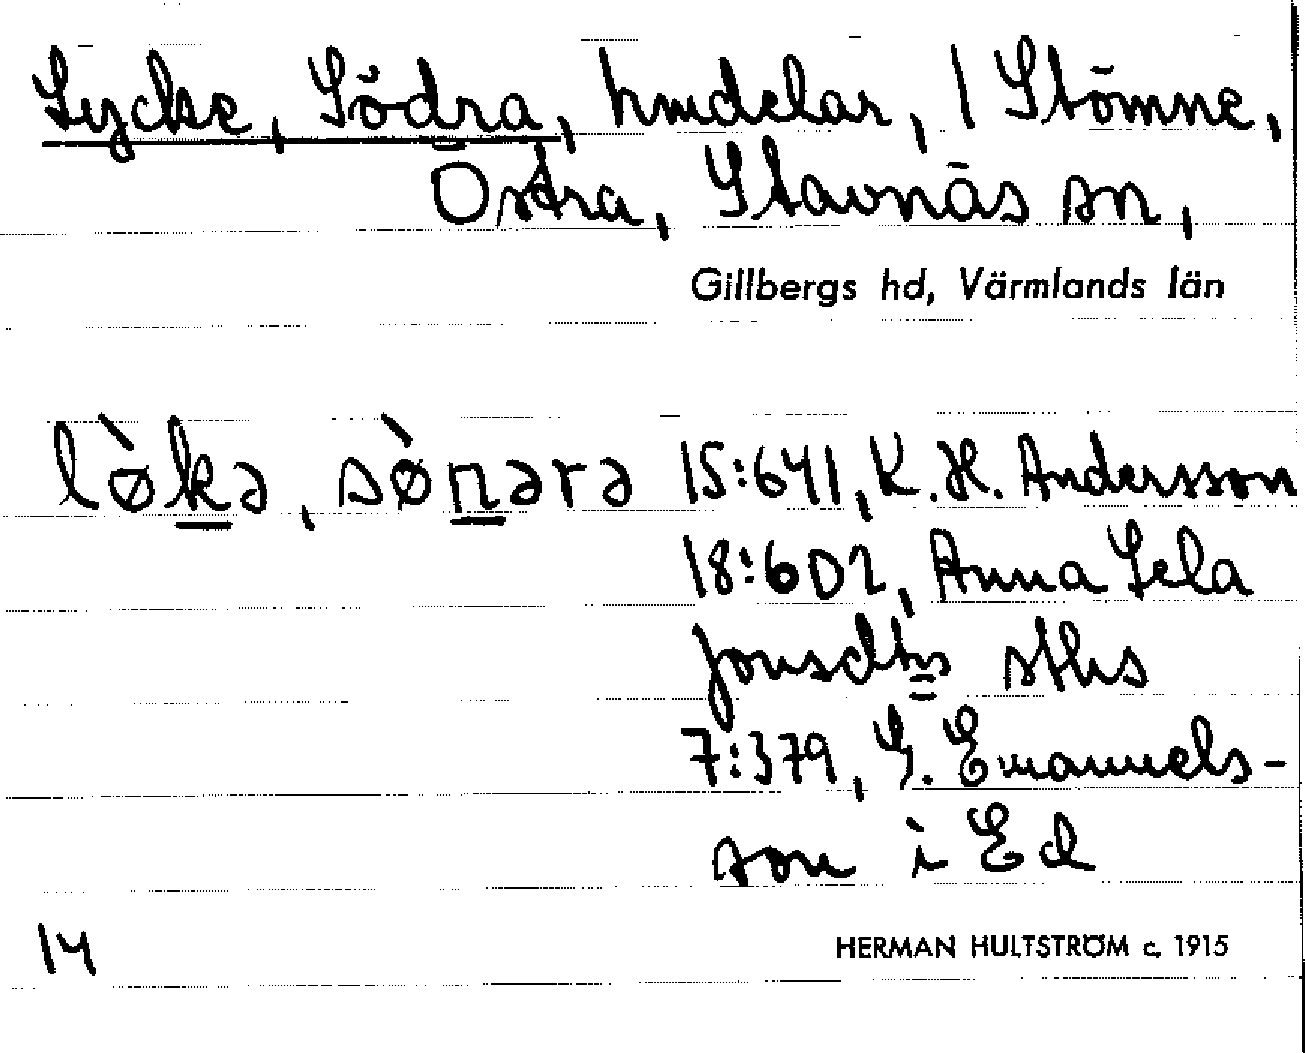 Lycke, Södra, hmdelar, 1 Stömne,
Östra, Stavnäs sn,
Gillbergs hd, Värmlands län
lø̀kə, sø̀nərə 15:641, K. H. Andersson
18:602, Anna Lela
Jonsdtrs sths
7:379, G. Emanuels-
son i Ed
14
HERMAN HULTSTRÖM c. 1915